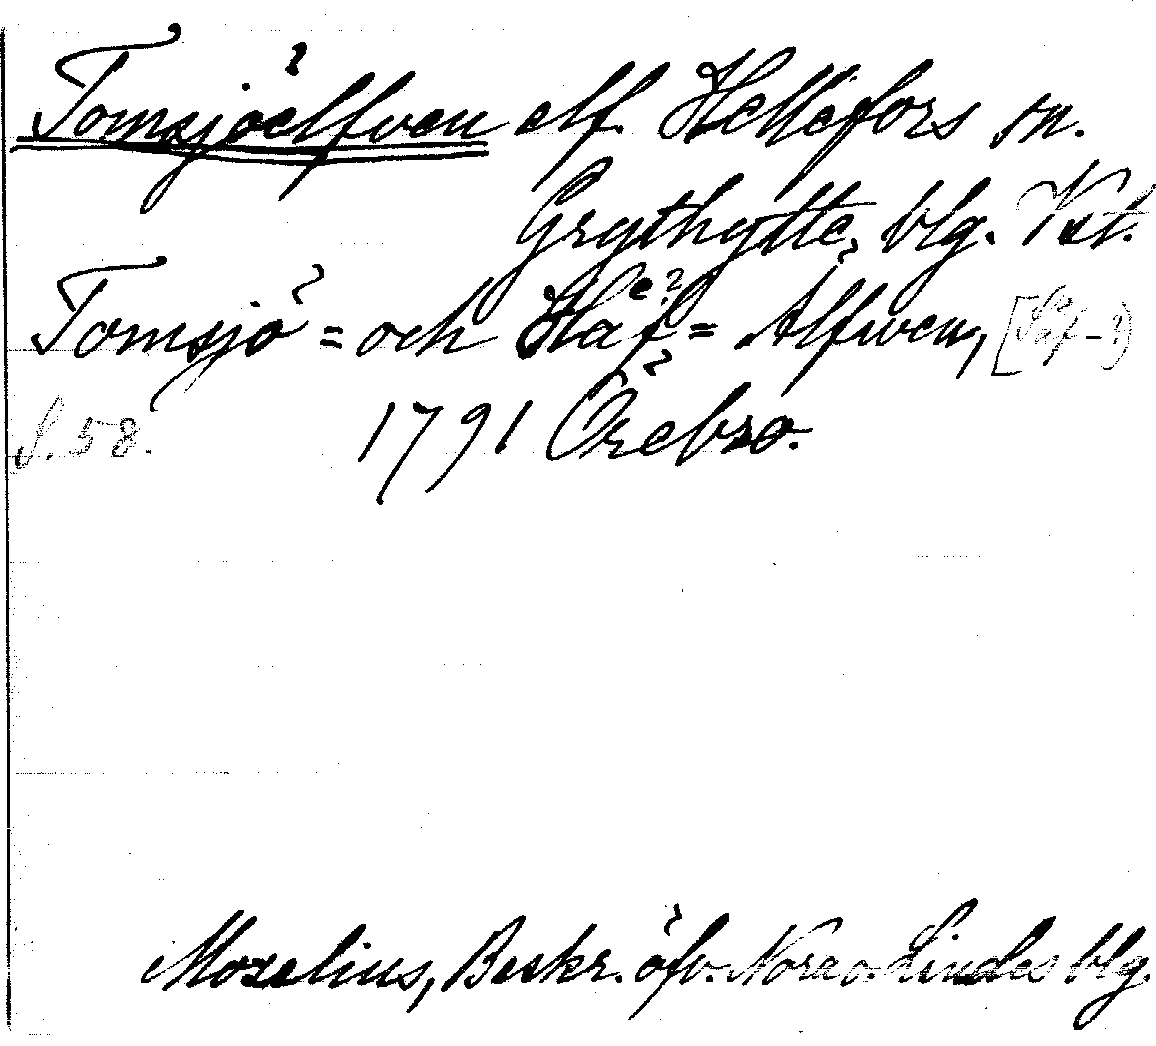 Tomsjöelfven elf. Hellefors sn.
Grythytte blg. Vstl.
Tomsjö = och Häf = Älfwen, [Säf-?)
S. 58. 1791 Örebro.
Mozelius, Beskr. öfv. Nora o. Lindes blg.